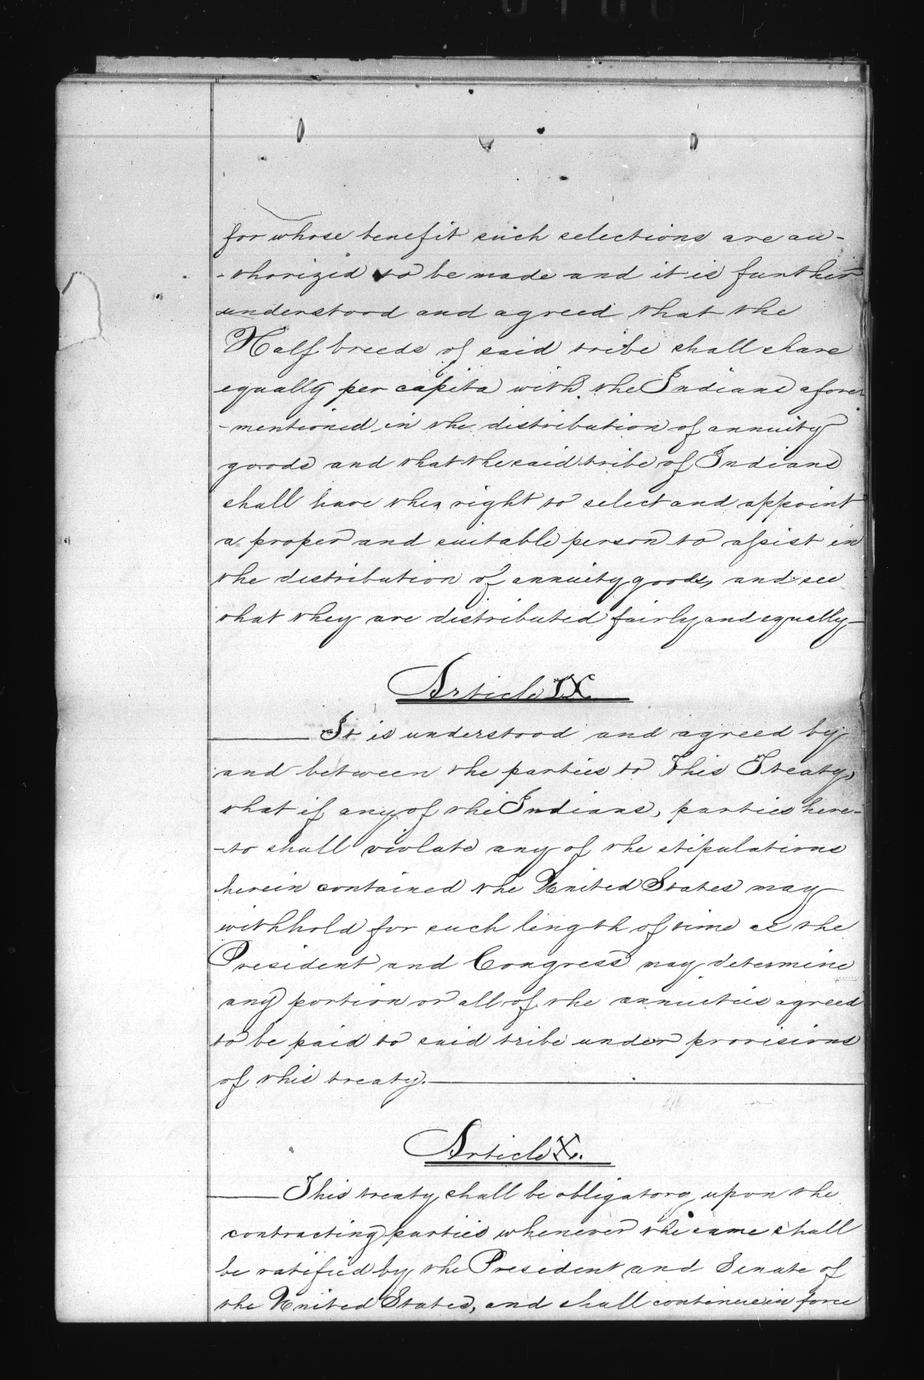 for whose benefit such selections are au-
-thorized to be made and it is further
understood and agreed that the
Half breeds of said tribe shall share
equally per capita with the Indians afore-
-mentioned in the distribution of annuity
goods and that the said tribe of Indians
shall have the right to select and appoint
a proper and suitable person to assist in
the distribution of annuity goods, and see
that they are distributed fairly and equally—
Article IX
It is understood and agreed by
and between the parties to this Treaty,
that if any of the Indians, parties here-
-to shall violate any of the stipulations
herein contained the United States may
withhold for such length of time as the
President and Congress may determine
any portion or all of the annuities agreed
to be paid to said tribe under provisions
of this treaty.
Article X.
This treaty shall be obligatory upon the
contracting parties whenever the same shall
be ratified by the President and Senate of
the United States, and shall continue in force